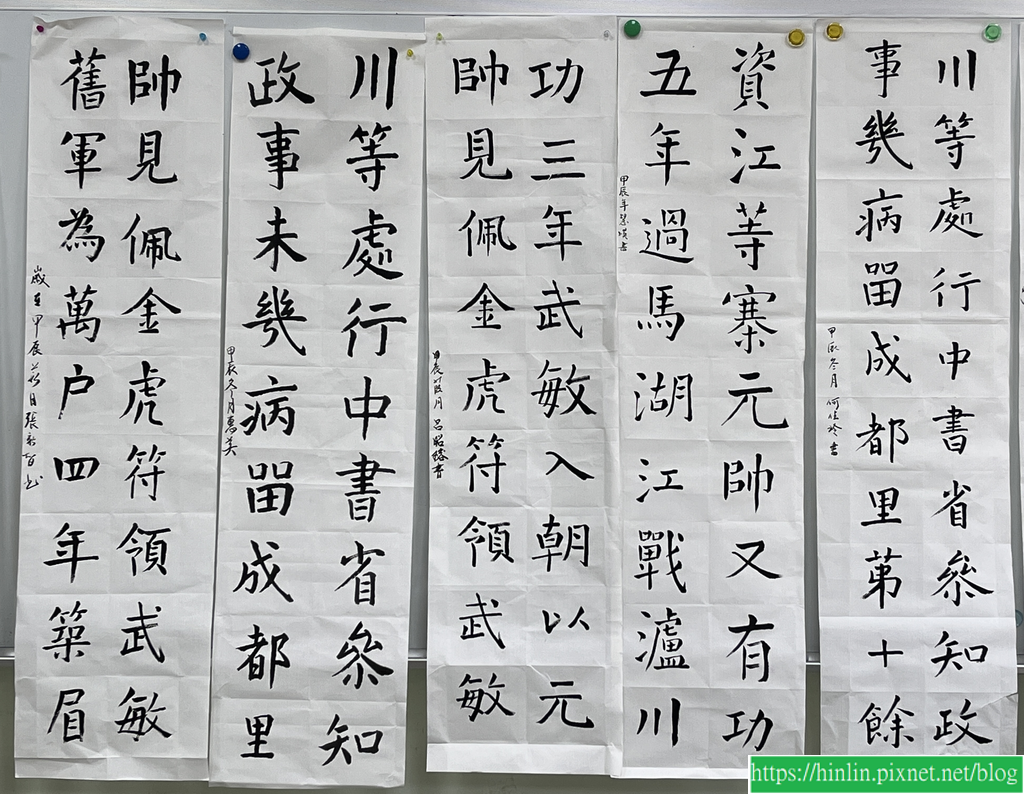 川等處行中書省叅知政
事幾病畱成都里苐十餘
甲辰冬月 何佳玲書
資江䓁寨元帥又有功
五年過馬湖江戰瀘川
甲辰年
功三年武敏入朝以元
帥見佩金虎符領武敏
甲辰 月 呂昭 書
川等處行中書省叅知
政事未幾病畱成都里
甲辰冬月惠美
帥見佩金虎符領武敏
舊軍為萬户四年築眉
歲在甲辰 日張
https://hinlin.pixnet.net/blog